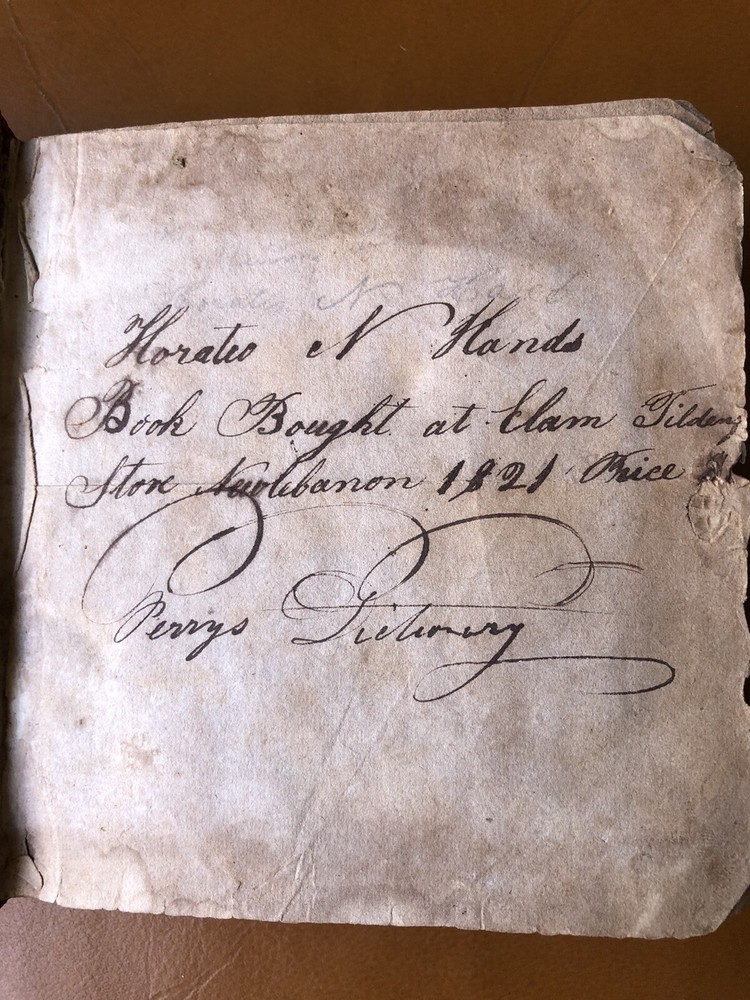 Horatio N Hand
Horatio N Hands
Book Bought at Elam Tildens
Store Newlebanon 1821 Price
Perrys Dictionery